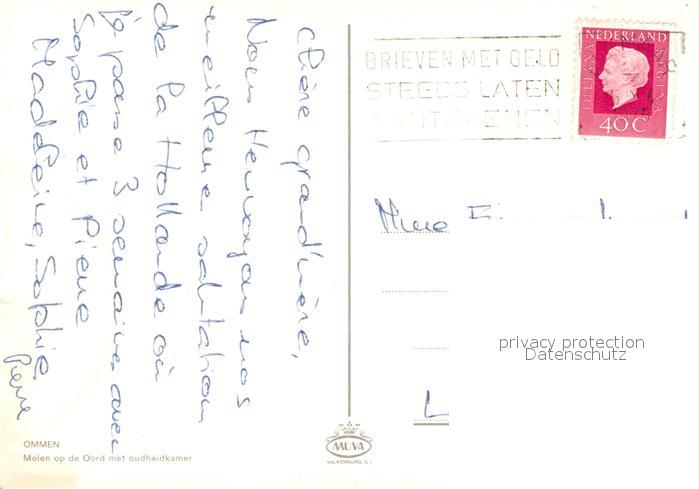 Chère grand'mère,
Nous t'envoyons nos
meilleure salutation
de la Hollande où
je passe 3 semaines avec
Sophie et Pierre
Maddeleine, Sophie
Pierre
BRIEVEN MET GELD
STEEDS LATEN
AANTEKENEN
NEDERLAND
JULIANA REGINA
40C
Mme
L
privacy protection
Datenschutz
OMMEN
Molen op de Oord met oudheidkamer
MUVA
VALKENBURG (L.)